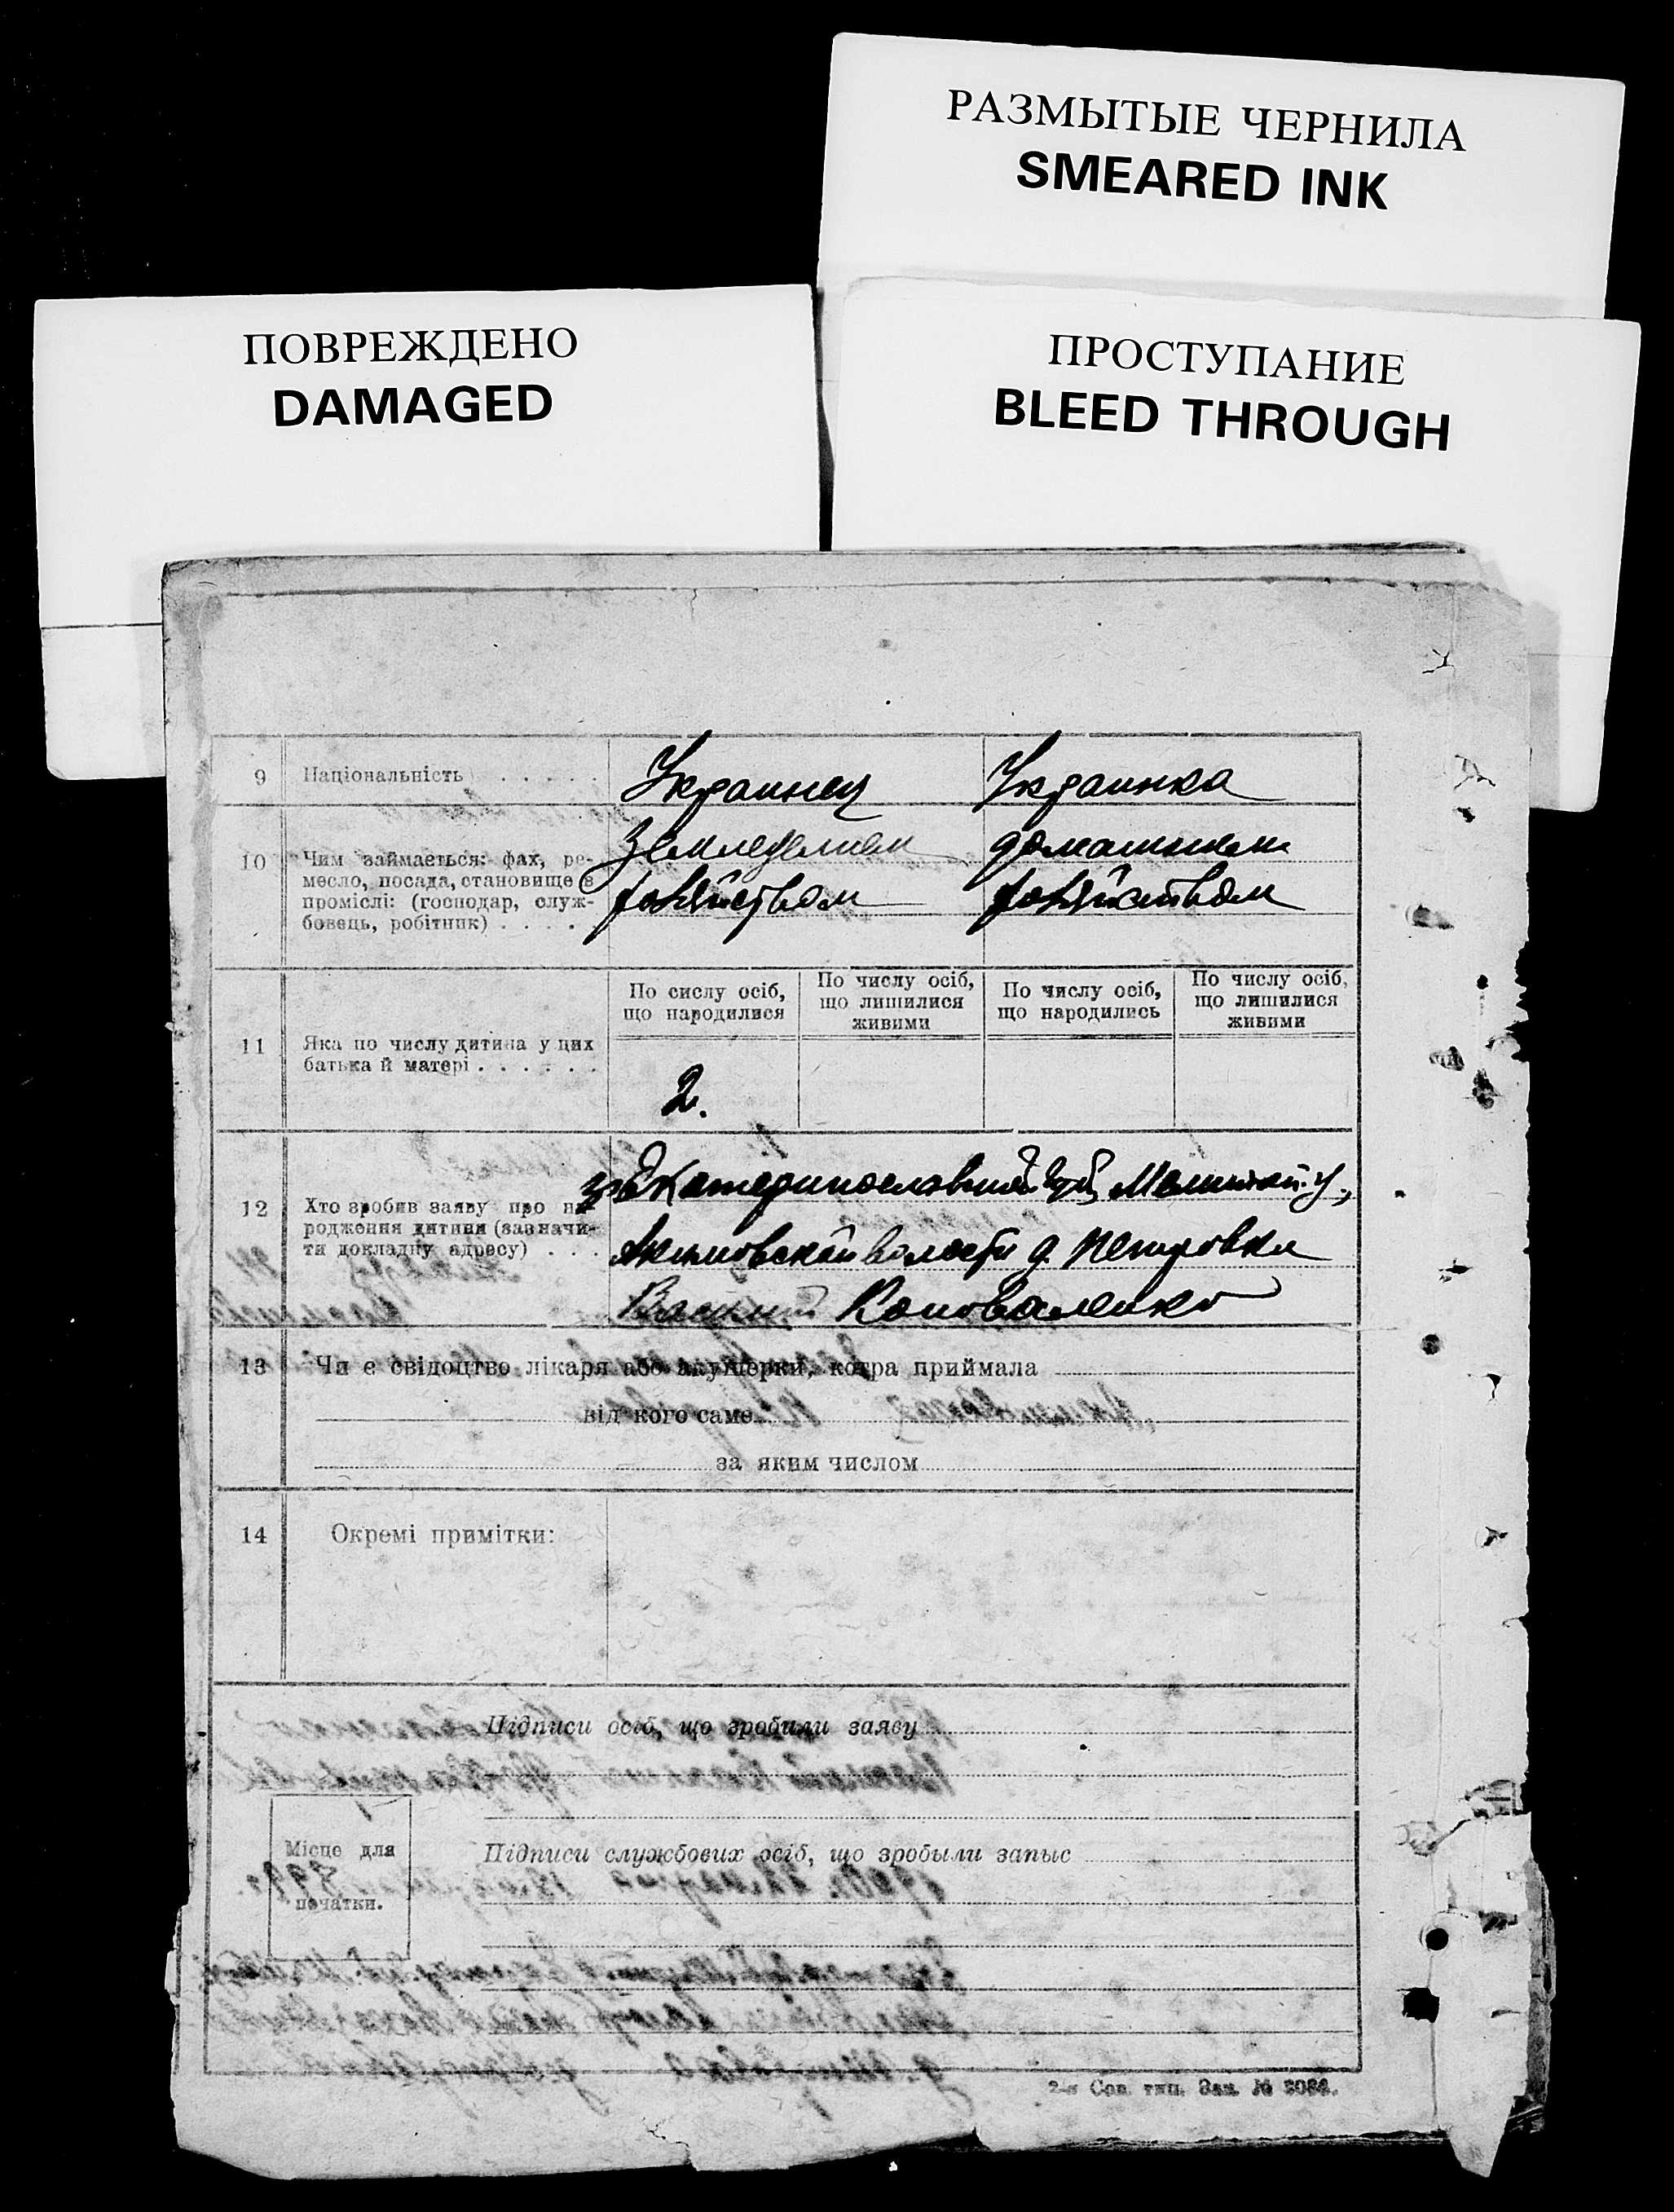 РАЗМЫТЫЕ ЧЕРНИЛА
SMEARED INK
ПОВРЕЖДЕНО
DAMAGED
ПРОСТУПАНИЕ
BLEED THROUGH
9 Національність . . . . . Украинец Украинка
10 Чим займається: фах, ре- Земледелием домашнем
месло, посада, становище в хозяйством хозяйством
проміслі: (господар, служ-
бовець, робітник) . . . .
По сислу осіб, що народилися
По числу осіб, що лишилися живими
По числу осіб, що народились
По числу осіб, що лишилися живими
11 Яка по числу дитина у цих
батька й матері . . . . . .
2.
12 Хто зробив заяву про на-
родження дитини (зазначи-
ти докладну адресу) . . .
Екатеринославской губ
Акимовской волости д. Петровка
Василий Коноваленко
13 Чи є свідоцтво лікаря або акушерки, котра приймала
від кого саме
за яким числом
14 Окремі примітки:
Підписи осіб, що зробили заяву
Місце для
печатки.
Підписи службових осіб, що зробыли запыс
2-я Сов. тип. Зак. №